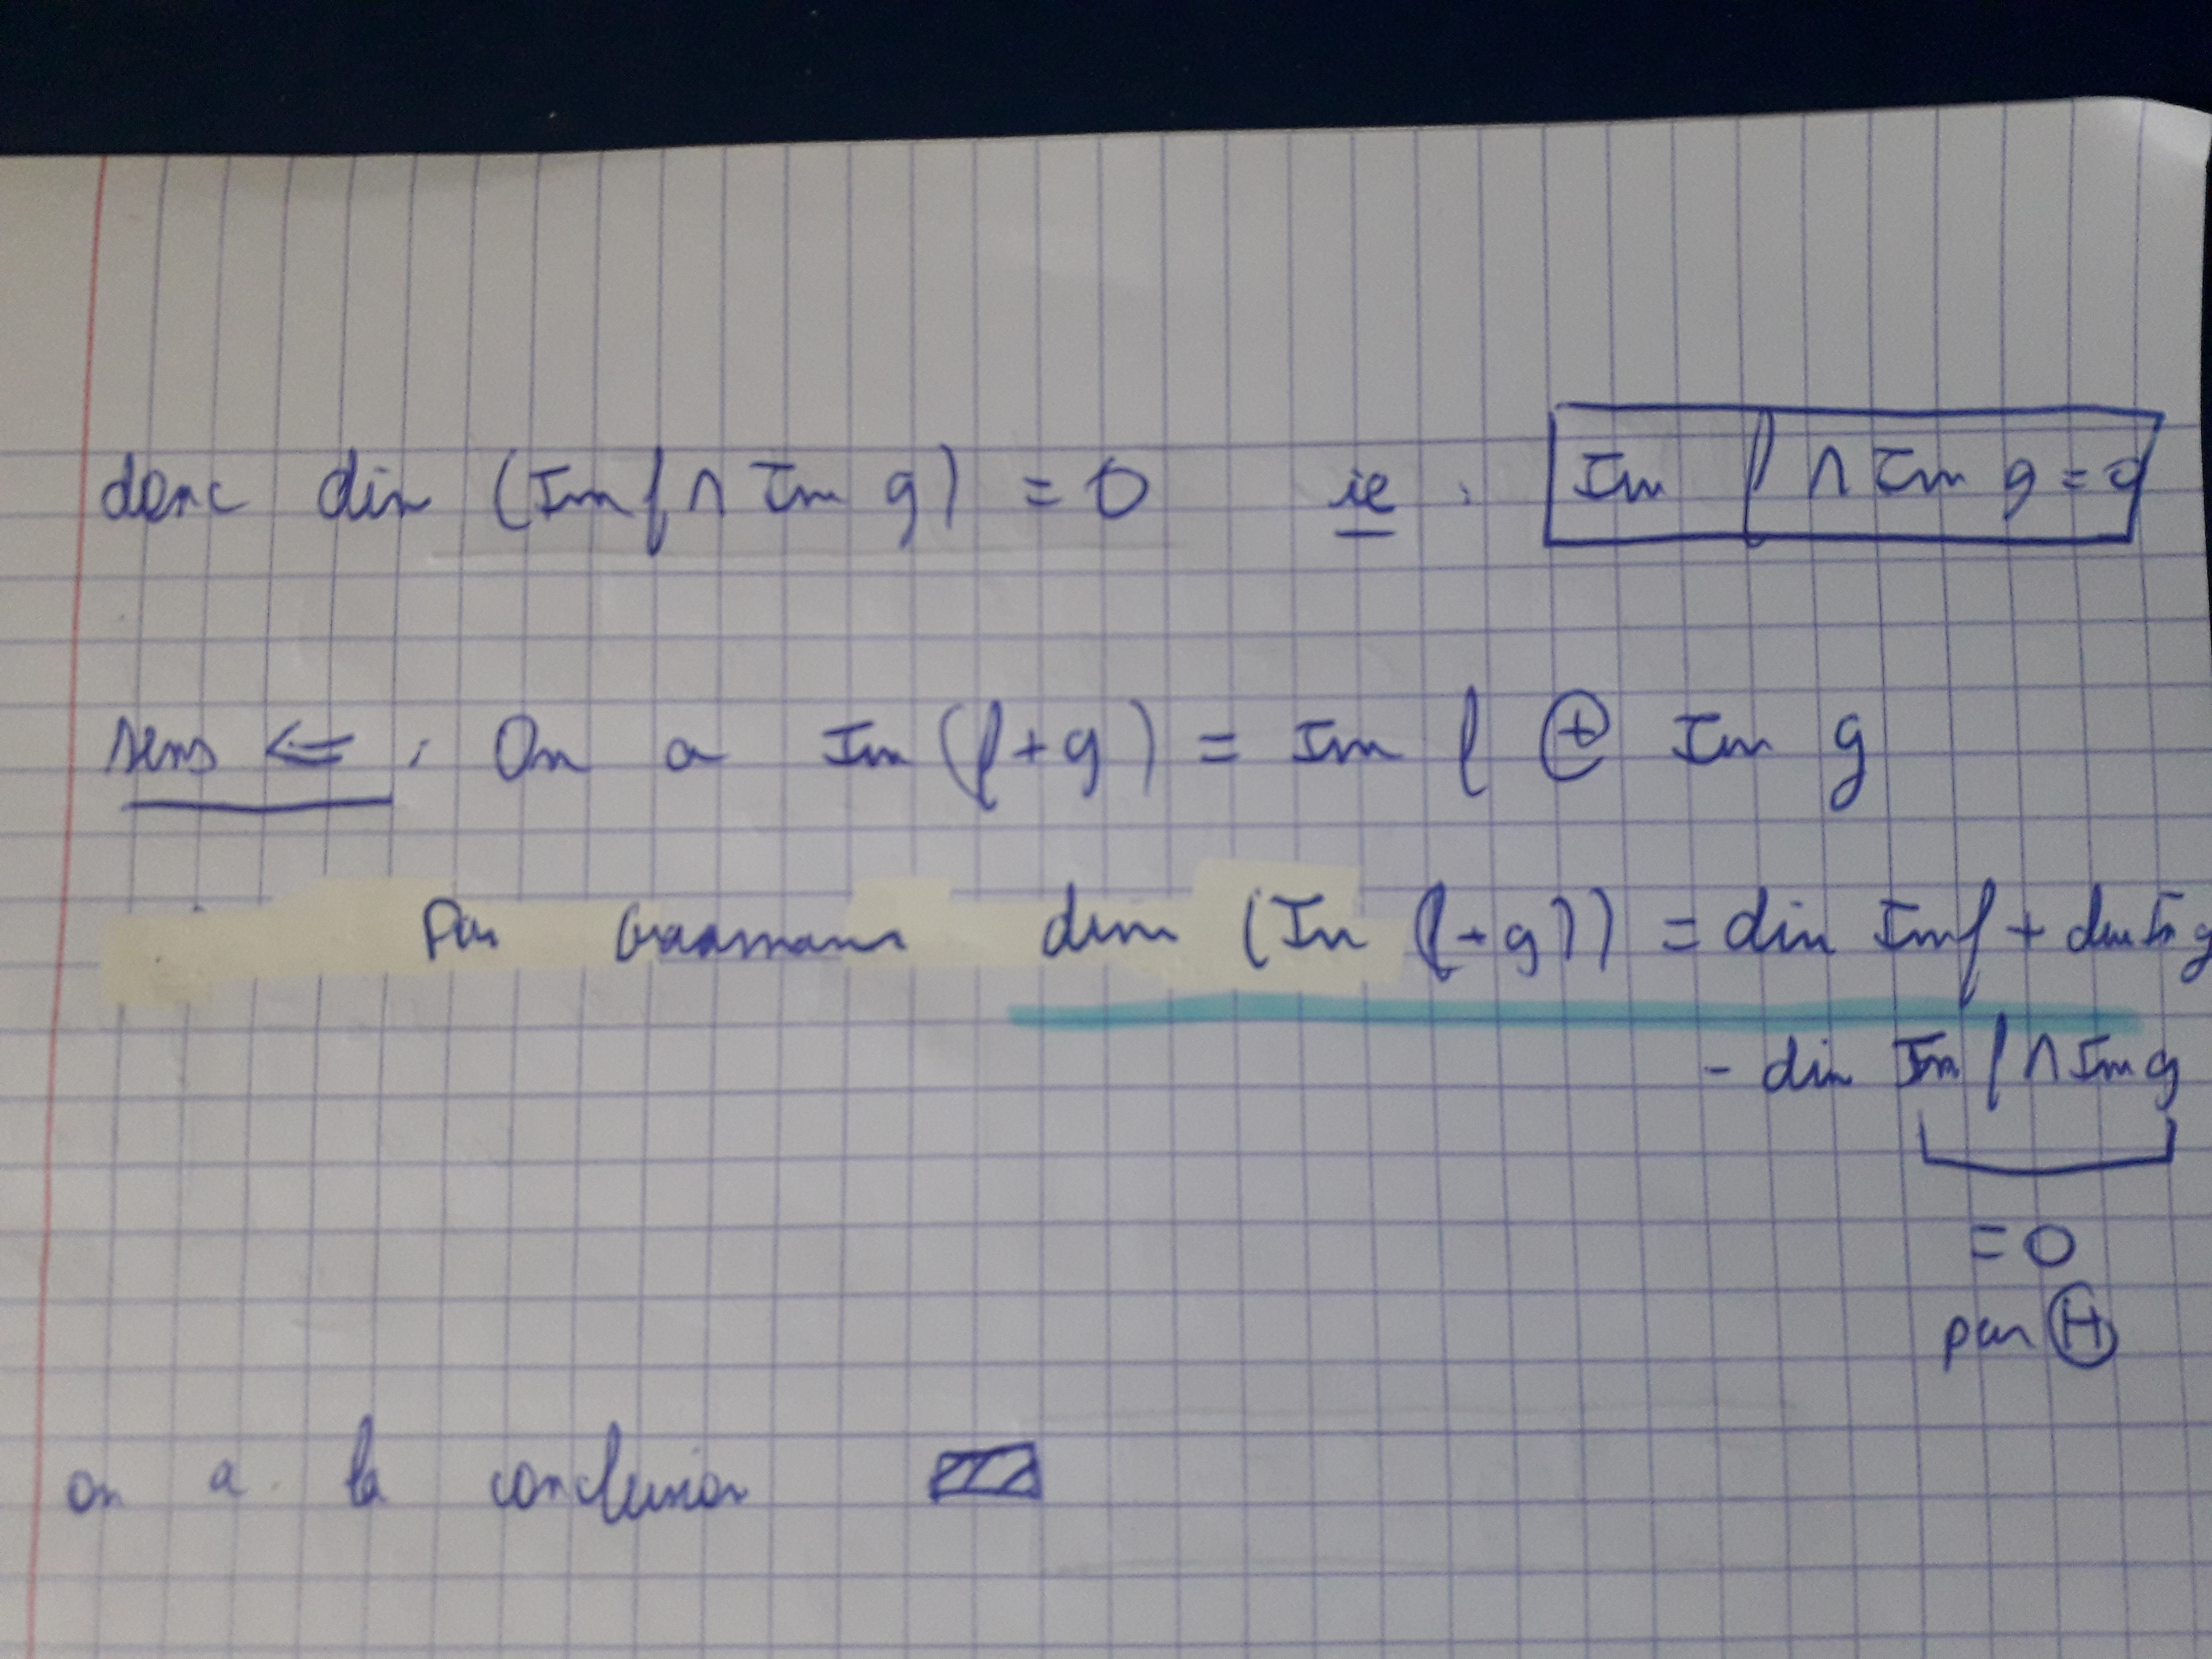 donc dim (Im f ∩ Im g) = 0 ie : Im f ∩ Im g = 0
sens <= : On a Im (f+g) = Im f ⊕ Im g
Par Grassmann dim (Im (f+g)) = dim Im f + dim Im g
- dim Im f ∩ Im g
= 0
par Ⓗ
on a la conclusion